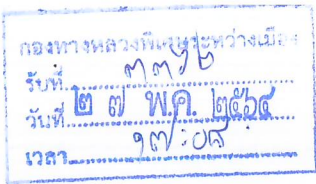 กองทางหลวงพิเศษระหว่างเมือง
รับที่
วันที่ ๒ ๗ พ.ค. ๒๕๖๔
เวลา ๑๗:๐๘